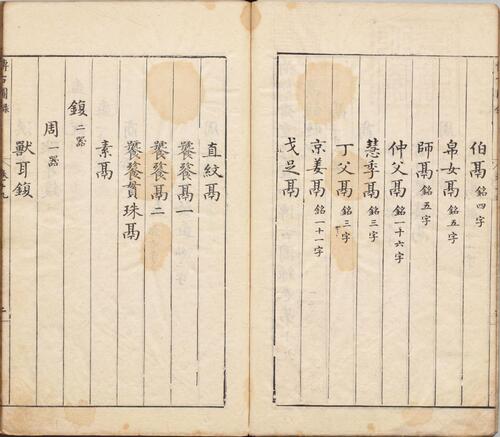 伯鬲 銘四字
帛女鬲 銘五字
師鬲 銘五字
仲父鬲 銘一十六字
慧季鬲 銘三字
丁父鬲 銘三字
京姜鬲 銘一十一字
戈足鬲
直紋鬲
饕餮鬲一
饕餮鬲二
饕餮貫珠鬲
素鬲
鍑 二器
周 一器
獸耳鍑